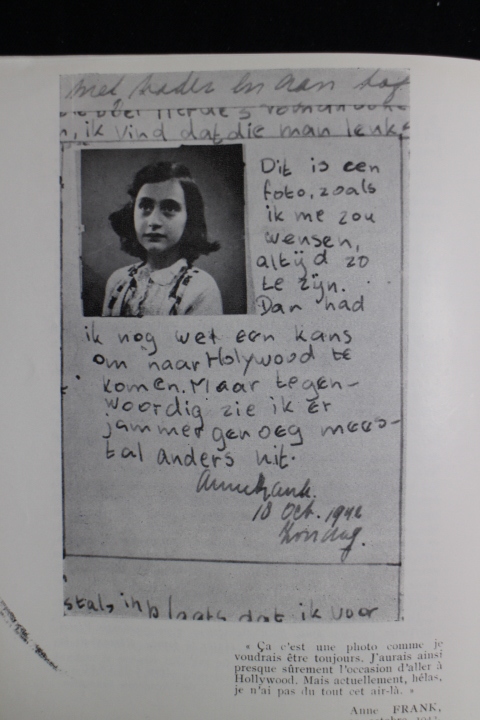 met vader en aan
, ik vind dat die man
Dit is een
foto, zoals
ik me zou
wensen,
altijd zo
te zijn.
Dan had
ik nog wel een kans
om naar Holywood te
komen. Maar tegen-
woordig zie ik er
jammer genoeg mees-
tal anders uit.
Anne Frank.
18 Oct. 1942
Zondag.
stals in plaats dat ik voor
« Ça c'est une photo comme je
voudrais être toujours. J'aurais ainsi
presque sûrement l'occasion d'aller à
Hollywood. Mais actuellement, hélas,
je n'ai pas du tout cet air-là. »
Anne FRANK,